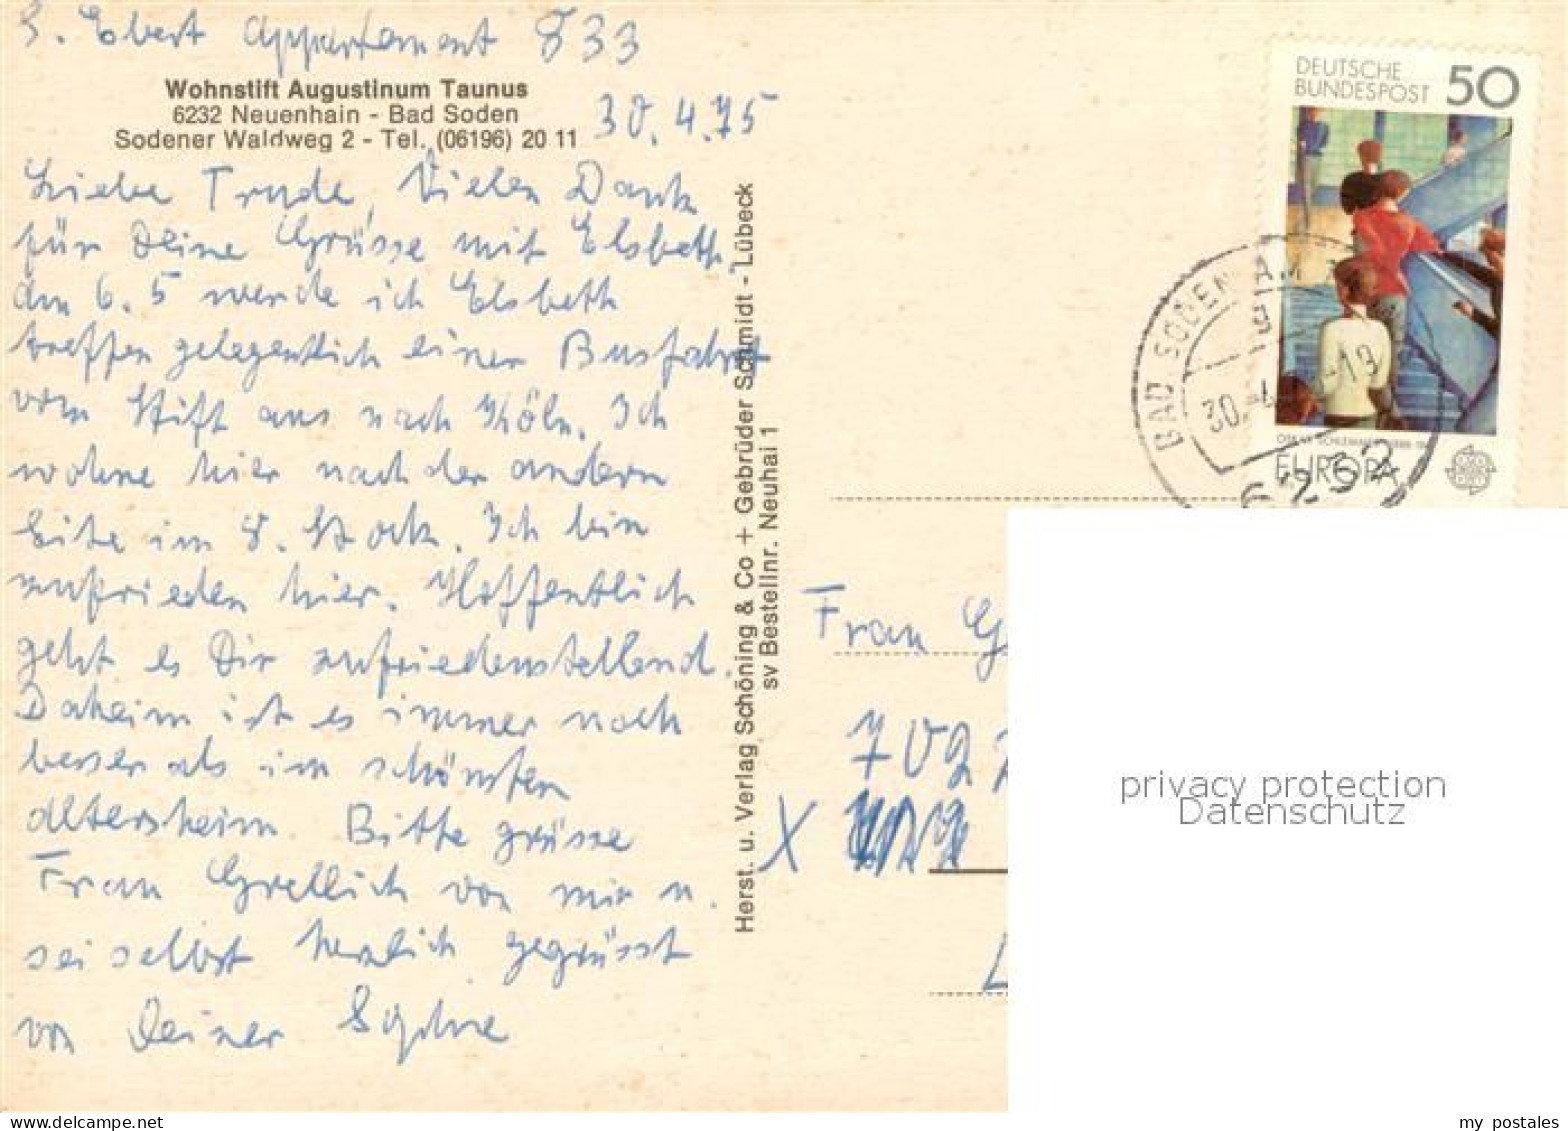 S. Ebert Appartement 833
Wohnstift Augustinum Taunus
6232 Neuenhain - Bad Soden
Sodener Waldweg 2 - Tel. (06196) 20 11
30.4.75
Liebe Trude, Vielen Dank
für Deine Grüsse mit Elsbeth.
Am 6.5 werde ich Elsbeth
treffen gelegentlich einer Busfahrt
vom Stift aus nach Köln. Ich
wohne hier nach der andern
Seite im 8. Stock. Ich bin
zufrieden hier. Hoffentlich
geht es Dir zufriedenstellend.
Daheim ist es immer noch
besser als im schönsten
Altersheim. Bitte grüsse
Frau Grellich von mir u.
sei selbst herzlich gegrüsst
von Deiner Sophie
Herst. u. Verlag Schöning & Co + Gebrüder Schmidt - Lübeck
sv Bestellnr. Neuhai 1
DEUTSCHE
BUNDESPOST 50
OSKAR SCHLEMMER 1888-19
EUROPA
BAD SODEN AM
30.-4. -19
6232
Frau G
702
X
L
privacy protection
Datenschutz
my postales